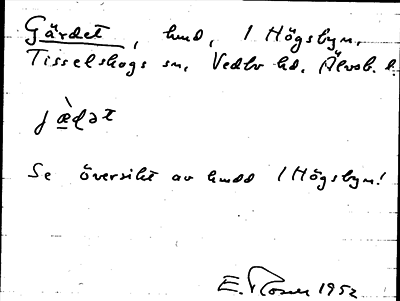 Gärdet, hmd, 1 Högsbyn,
Tisselskogs sn, Vedbo hd, Älvsb. l.
jæ̀ḍət
Se översikt av hmdd 1 Högsbyn!
E. 1952